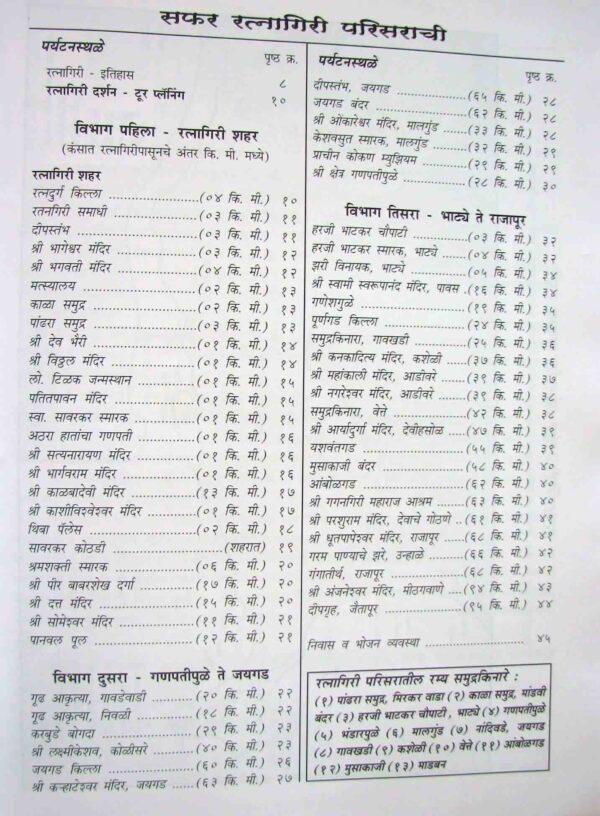 सफर रत्नागिरी परिसराची
पर्यटनस्थळे
पृष्ठ क्र.
रत्नागिरी - इतिहास ८
रत्नागिरी दर्शन - टूर प्लॅनिंग १०
विभाग पहिला - रत्नागिरी शहर
(कंसात रत्नागिरीपासूनचे अंतर कि. मी. मध्ये)
रत्नागिरी शहर
रत्नदुर्ग किल्ला ................(०४ कि. मी.) १०
रतनगिरी समाधी ................(०३ कि. मी.) ११
दीपस्तंभ ................(०३ कि. मी.) ११
श्री भागेश्वर मंदिर ................(०३ कि. मी.) १२
श्री भगवती मंदिर ................(०४ कि. मी.) १२
मत्स्यालय ................(०२ कि. मी.) १३
काळा समुद्र ................(०२ कि. मी.) १३
पांढरा समुद्र ................(०३ कि. मी.) १३
श्री देव भैरी ................(०१ कि. मी.) १४
श्री विठ्ठल मंदिर ................(०१ कि. मी.) १४
लो. टिळक जन्मस्थान ................(०१ कि. मी.) १५
पतितपावन मंदिर ................(०१ कि. मी.) १५
स्वा. सावरकर स्मारक ................(०१ कि. मी.) १५
अठरा हातांचा गणपती ................(०१ कि. मी.) १६
श्री सत्यनारायण मंदिर ................(०१ कि. मी.) १६
श्री भार्गवराम मंदिर ................(०१ कि. मी.) १६
श्री काळबादेवी मंदिर ................(१३ कि. मी.) १७
श्री काशीविश्वेश्वर मंदिर ................(०१ कि. मी.) १७
थिबा पॅलेस ................(०२ कि. मी.) १८
सावरकर कोठडी ................(शहरात) १९
श्रमशक्ती स्मारक ................(०६ कि. मी.) २०
श्री पीर बाबरशेख दर्गा ................(१७ कि. मी.) २०
श्री दत्त मंदिर ................(१५ कि. मी.) २०
श्री सोमेश्वर मंदिर ................(११ कि. मी.) २१
पानवल पूल ................(१२ कि. मी.) २१
विभाग दुसरा - गणपतीपुळे ते जयगड
गूढ आकृत्या, गावडेवाडी ................(२० कि. मी.) २२
गूढ आकृत्या, निवळी ................(१८ कि. मी.) २२
करबुडे बोगदा ................(२९ कि. मी.) २३
श्री लक्ष्मीकेशव, कोळीसरे ................(४० कि. मी.) २३
जयगड किल्ला ................(६० कि. मी.) २६
श्री कऱ्हाटेश्वर मंदिर, जयगड .......(६३ कि. मी.) २७
पर्यटनस्थळे
पृष्ठ क्र.
दीपस्तंभ, जयगड ................(६५ कि. मी.) २८
जयगड बंदर ................(६२ कि. मी.) २८
श्री ओंकारेश्वर मंदिर, मालगुंड .......(३३ कि. मी.) २८
केशवसुत स्मारक, मालगुंड .......(३२ कि. मी.) २९
प्राचीन कोकण म्युझियम ................(२९ कि. मी.) २९
श्री क्षेत्र गणपतीपुळे ................(२८ कि. मी.) ३०
विभाग तिसरा - भाट्ये ते राजापूर
हरजी भाटकर चौपाटी ................(०३ कि. मी.) ३२
हरजी भाटकर स्मारक, भाट्ये .......(०४ कि. मी.) ३२
झरी विनायक, भाट्ये ................(०५ कि. मी.) ३४
श्री स्वामी स्वरूपानंद मंदिर, पावस .(१६ कि. मी.) ३४
गणेशगुळे ................(१९ कि. मी.) ३५
पूर्णगड किल्ला ................(२४ कि. मी.) ३५
समुद्रकिनारा, गावखडी ................(२५ कि. मी.) ३६
श्री कनकादित्य मंदिर, कशेळी .......(३७ कि. मी.) ३६
श्री महांकाली मंदिर, आडीवरे .......(३९ कि. मी.) ३७
श्री नगरेश्वर मंदिर, आडीवरे .......(३९ कि. मी.) ३८
समुद्रकिनारा, वेत्ते ................(४२ कि. मी.) ३८
श्री आर्यादुर्गा मंदिर, देवीहसोळ .....(४७ कि. मी.) ३९
यशवंतगड ................(५५ कि. मी.) ३९
मुसाकाजी बंदर ................(५८ कि. मी.) ४०
आंबोळगड ................(६२ कि. मी.) ४०
श्री गगनगिरी महाराज आश्रम .......(६३ कि. मी.) ४०
श्री परशुराम मंदिर, देवाचे गोठणे ..(६१ कि. मी.) ४१
श्री धूतपापेश्वर मंदिर, राजापूर .......(६८ कि. मी.) ४१
गरम पाण्याचे झरे, उन्हाळे .......(६६ कि. मी.) ४२
गंगातीर्थ, राजापूर ................(६८ कि. मी.) ४२
श्री अंजनेश्वर मंदिर, मीठगवाणे .....(९४ कि. मी.) ४३
दीपगृह, जैतापूर ................(९५ कि. मी.) ४४
निवास व भोजन व्यवस्था ................ ४५
रत्नागिरी परिसरातील रम्य समुद्रकिनारे :
(१) पांढरा समुद्र, मिरकर वाडा (२) काळा समुद्र, मांडवी
बंदर (३) हरजी भाटकर चौपाटी, भाट्ये (४) गणपतीपुळे
(५) भंडारपुळे (६) मालगुंड (७) नांदिवडे, जयगड
(८) गावखडी (९) कशेळी (१०) वेत्ते (११) आंबोळगड
(१२) मुसाकाजी (१३) माडबन